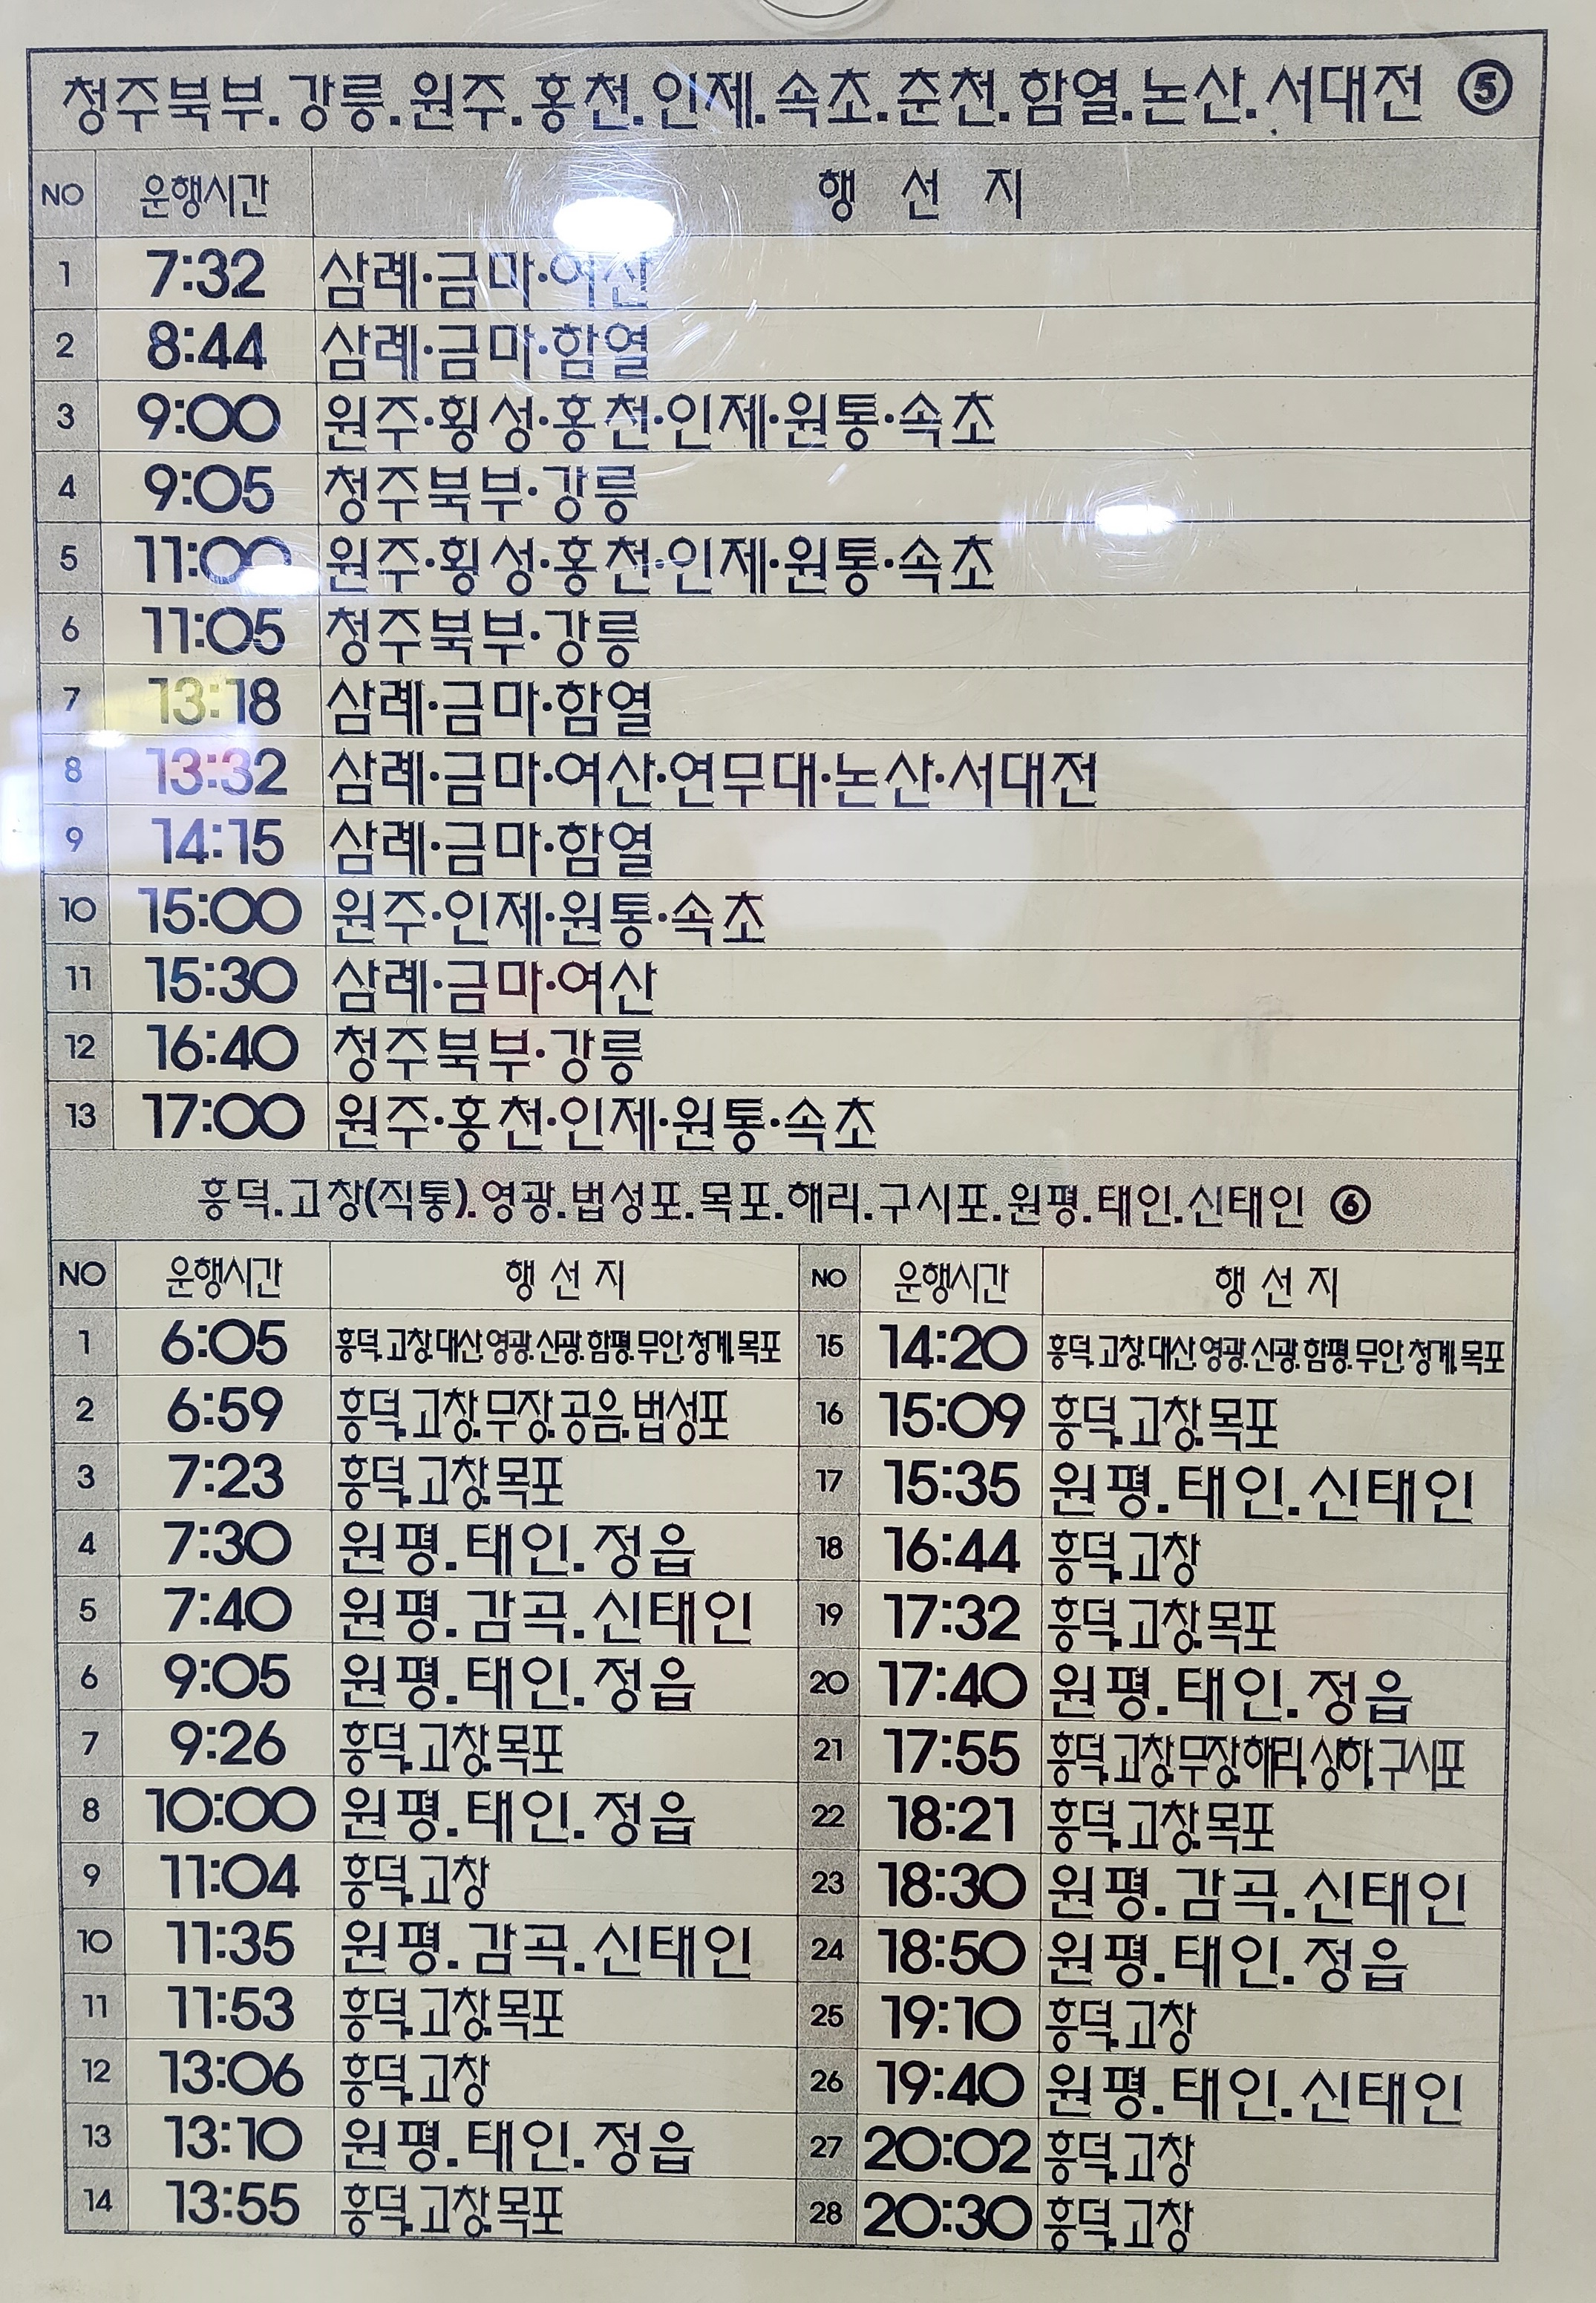 청주북부.강릉.원주.홍천.인제.속초.춘천.함열.논산.서대전 ⑤
NO 운행시간 행 선 지
1 7:32 삼례·금마·여산
2 8:44 삼례·금마·함열
3 9:00 원주·횡성·홍천·인제·원통·속초
4 9:05 청주북부·강릉
5 11:00 원주·횡성·홍천·인제·원통·속초
6 11:05 청주북부·강릉
7 13:18 삼례·금마·함열
8 13:32 삼례·금마·여산·연무대·논산·서대전
9 14:15 삼례·금마·함열
10 15:00 원주·인제·원통·속초
11 15:30 삼례·금마·여산
12 16:40 청주북부·강릉
13 17:00 원주·홍천·인제·원통·속초
흥덕.고창(직통).영광.법성포.목포.해리.구시포.원평.태인.신태인 ⑥
NO 운행시간 행 선 지 NO 운행시간 행 선 지
1 6:05 흥덕.고창.대산.영광.신광.함평.무안.청계.목포 15 14:20 흥덕.고창.대산.영광.신광.함평.무안.청계.목포
2 6:59 흥덕.고창.무장.공음.법성포 16 15:09 흥덕.고창.목포
3 7:23 흥덕.고창.목포 17 15:35 원평.태인.신태인
4 7:30 원평.태인.정읍 18 16:44 흥덕.고창
5 7:40 원평.감곡.신태인 19 17:32 흥덕.고창.목포
6 9:05 원평.태인.정읍 20 17:40 원평.태인.정읍
7 9:26 흥덕.고창.목포 21 17:55 흥덕.고창.무장.해리.상하.구시포
8 10:00 원평.태인.정읍 22 18:21 흥덕.고창.목포
9 11:04 흥덕.고창 23 18:30 원평.감곡.신태인
10 11:35 원평.감곡.신태인 24 18:50 원평.태인.정읍
11 11:53 흥덕.고창.목포 25 19:10 흥덕.고창
12 13:06 흥덕.고창 26 19:40 원평.태인.신태인
13 13:10 원평.태인.정읍 27 20:02 흥덕.고창
14 13:55 흥덕.고창.목포 28 20:30 흥덕.고창